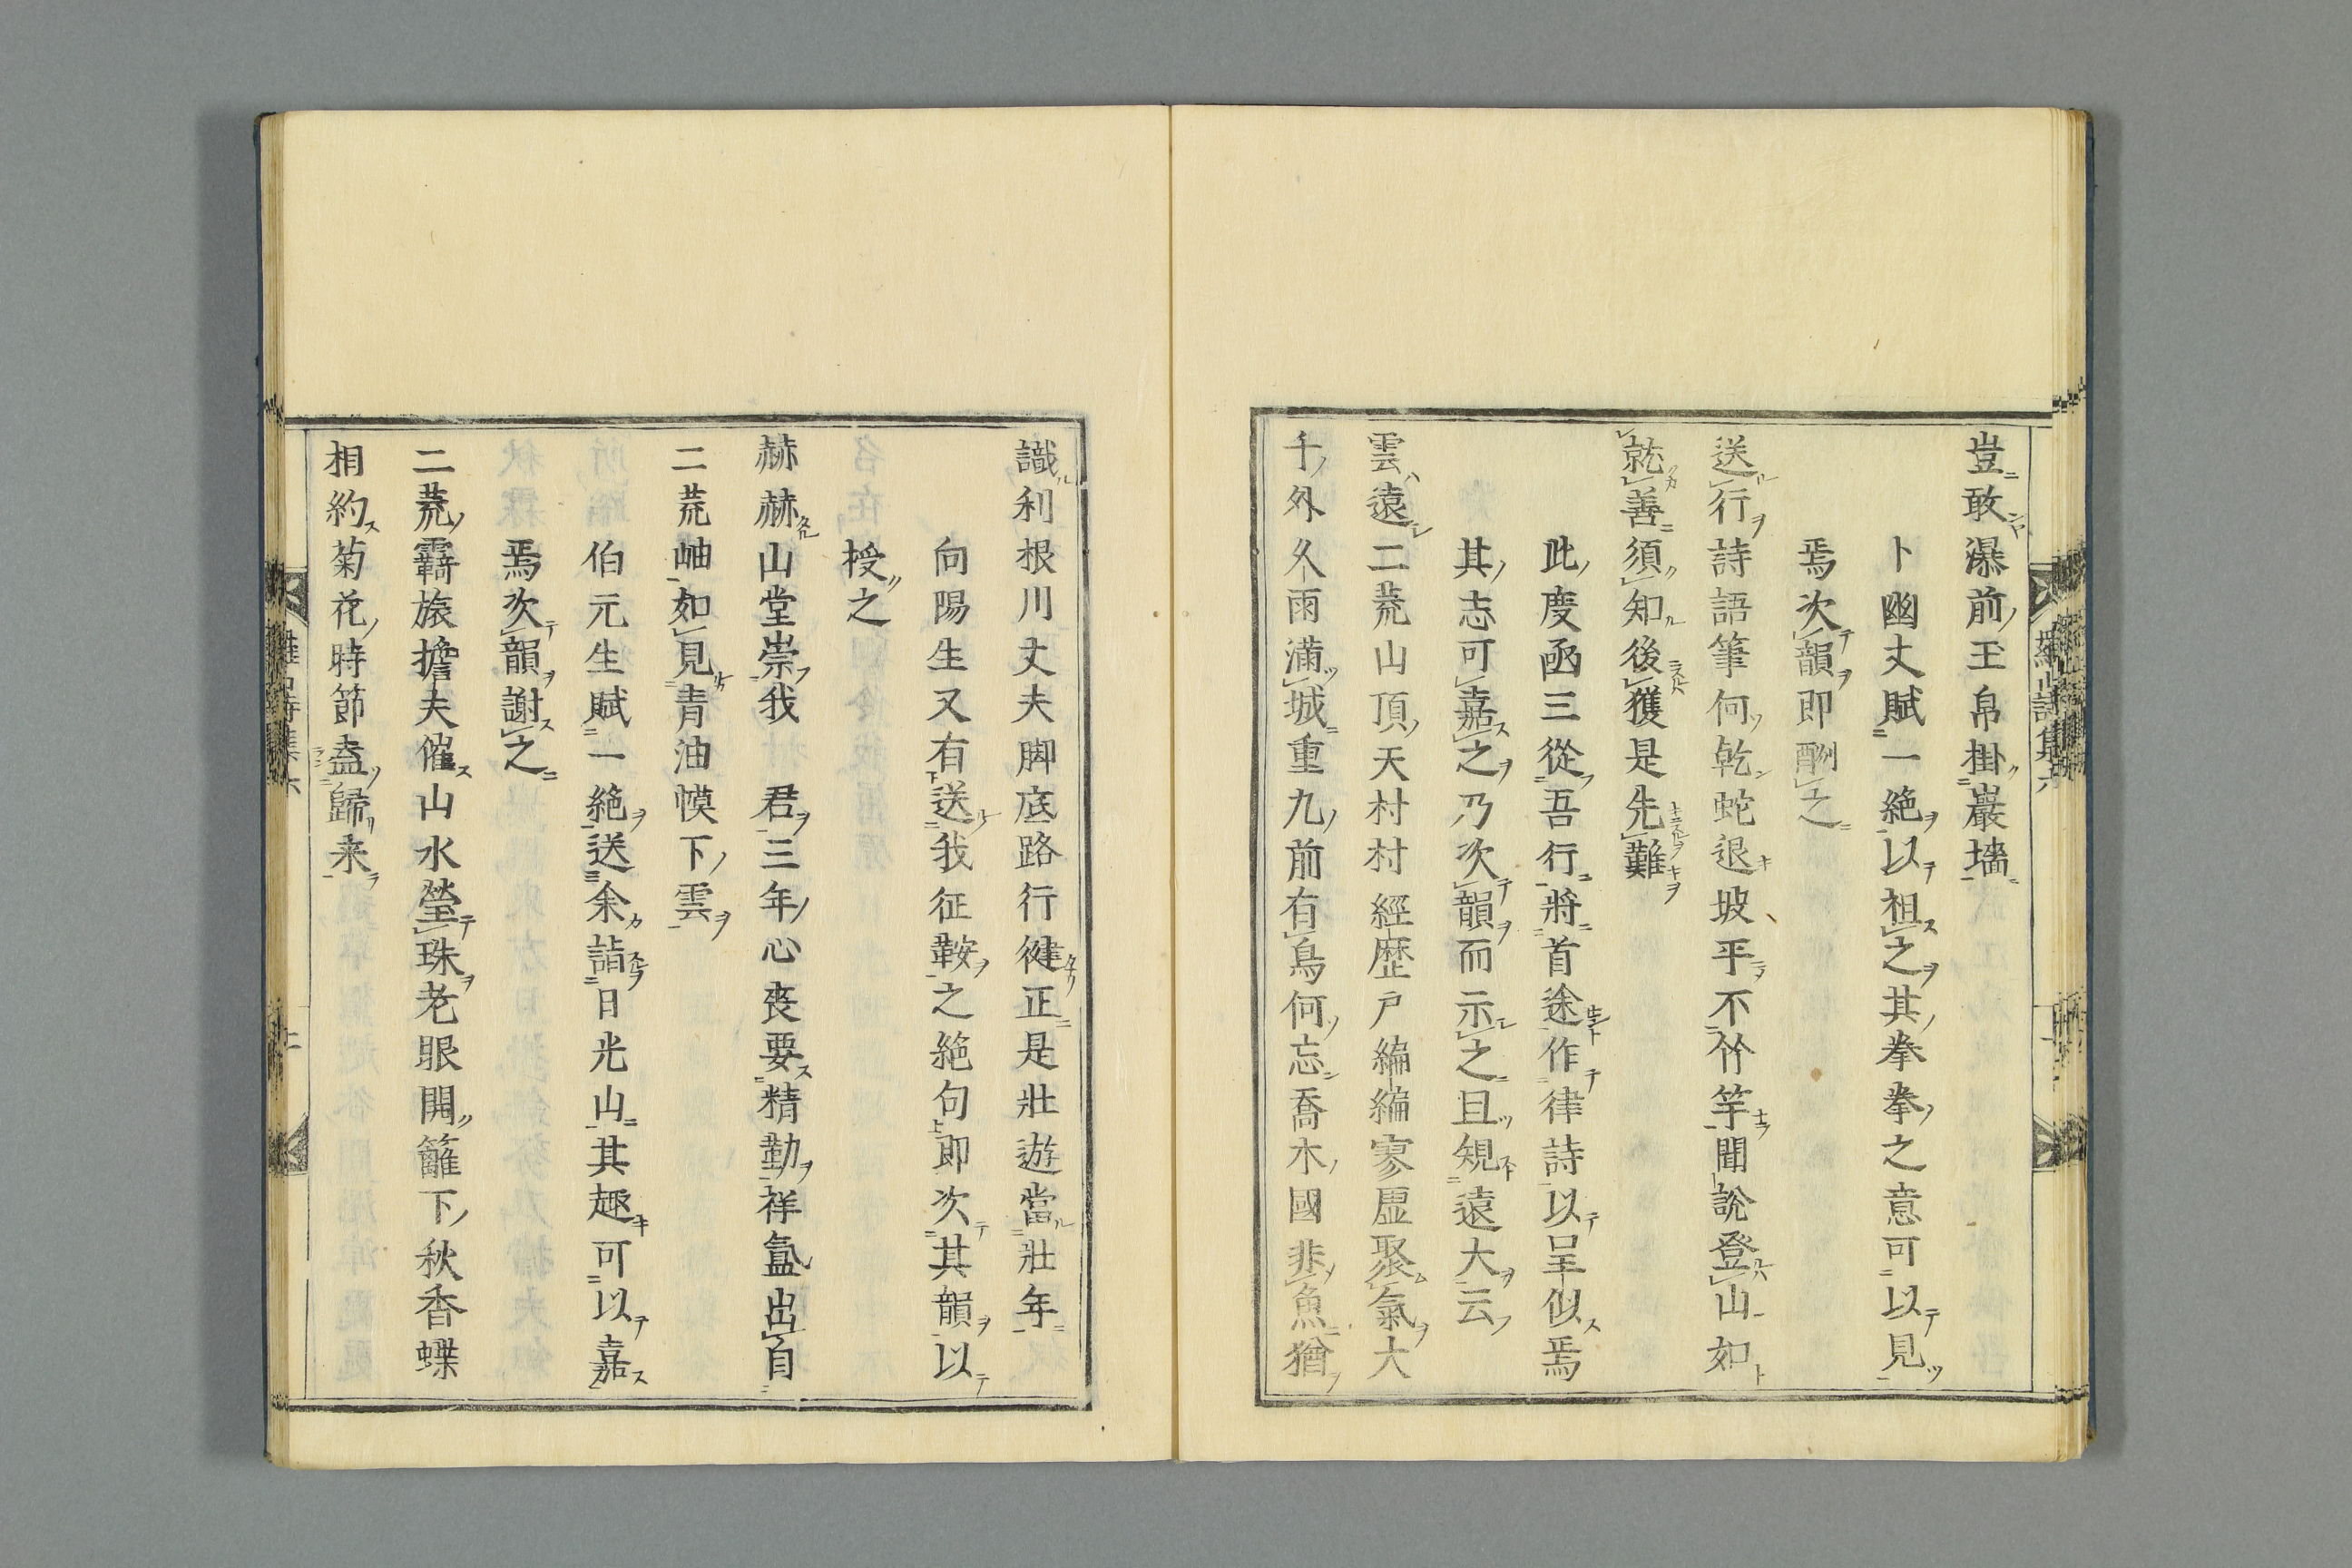 豈敢瀑前玉帛掛巖墻
卜幽丈賦一絶以祖之其拳拳之意可以見
焉次韻即酬之
送行詩語筆何乾蛇退坡平不竹竿聞説登山如
就善須知後獲是先難
此度函三從吾行將首途作律詩以呈似焉
其志可嘉之乃次韻而示之且規遠大云
雲遠二荒山頂天村村經歴戸編編寥屈聚氣大
千外久雨滿城重九前有鳥何忘喬木國非魚猶
識利根川丈夫脚底路行徤正是壯遊當壯年
向陽生又有送我征鞍之絶句即次其韻以
授之
赫赫山堂崇我　君三年心喪要精勤祥氳出自
二荒岫如見青油幙下雲
伯元生賦一絶送余詣日光山其趣可以嘉
焉次韻謝之
二荒霽旅擔夫催山水瑩珠老眼開籬下秋香蝶
相約菊花時節盍歸来